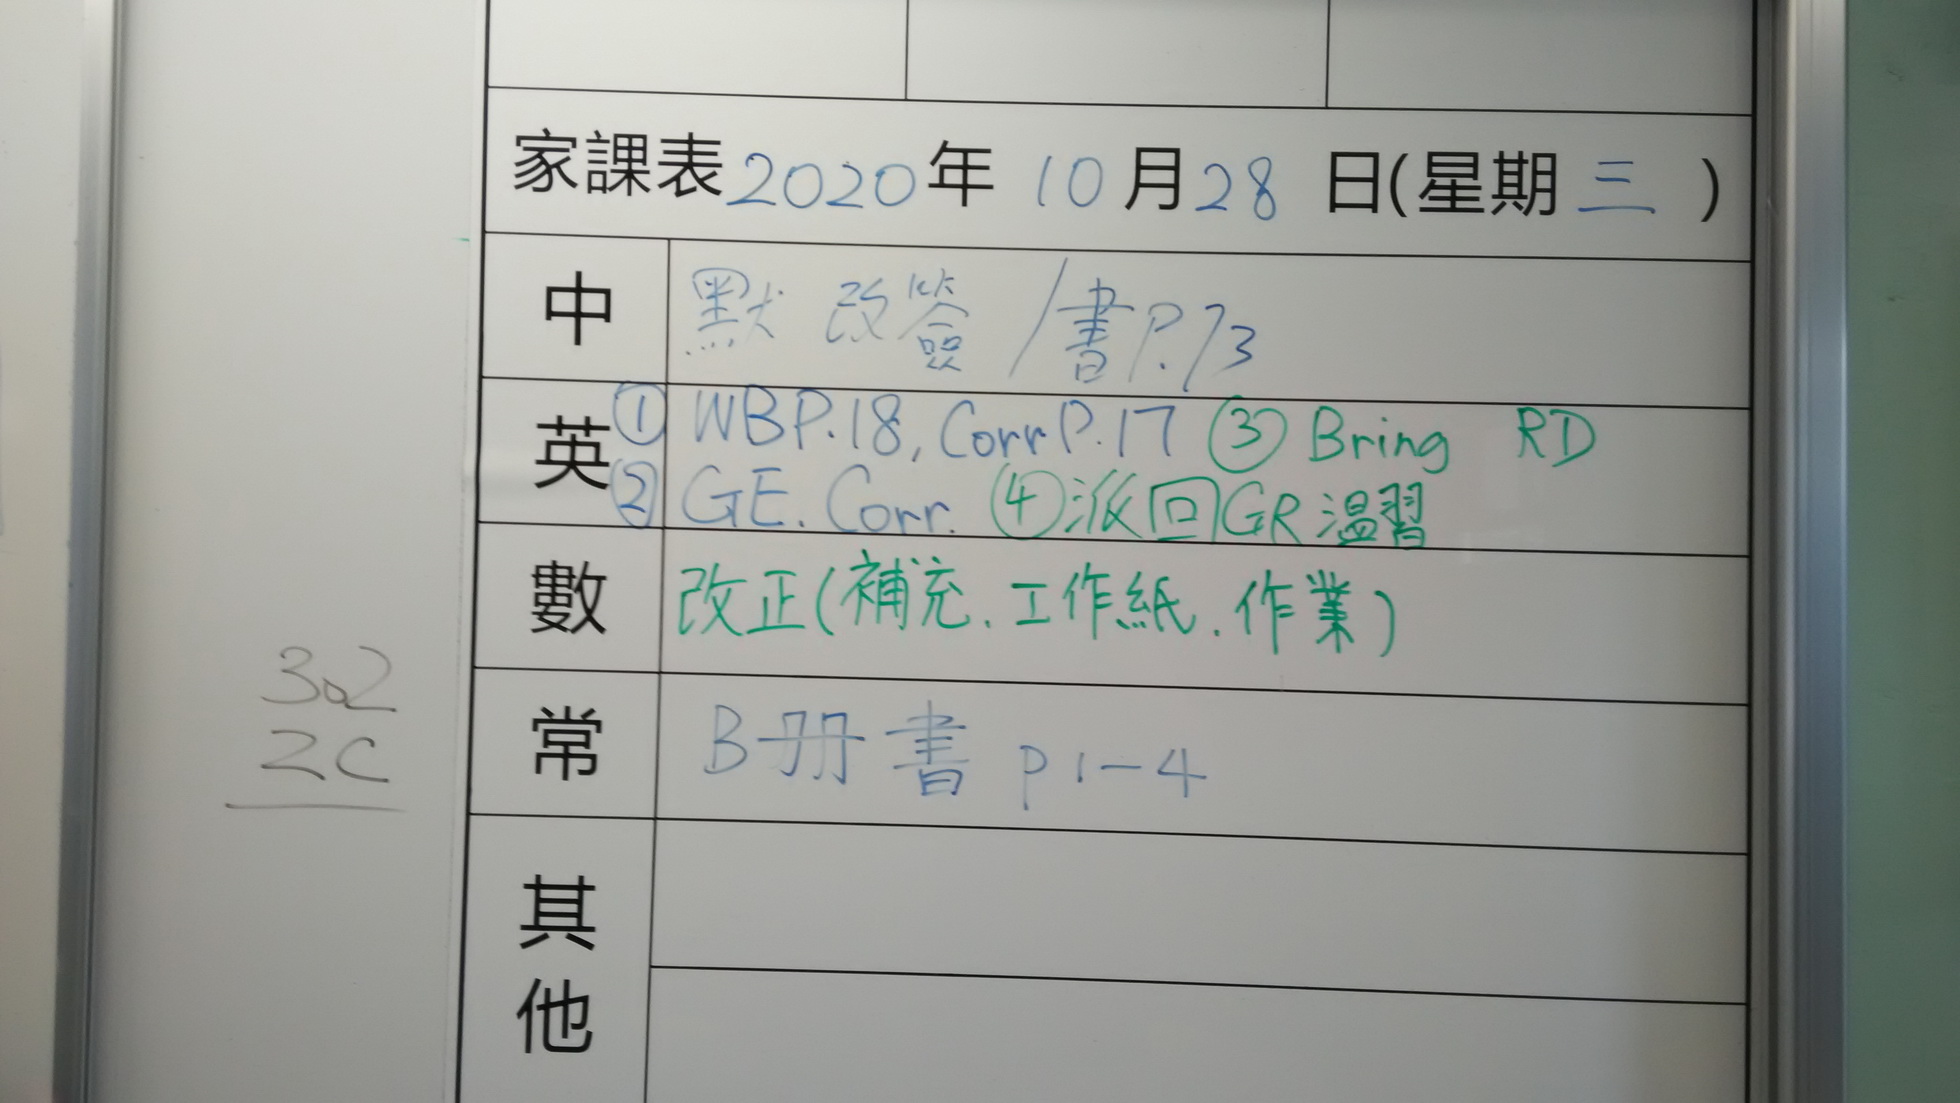 家課表2020年 10月28日(星期三)
中 默 改簽 / 書P.73
英 ① WBP.18, Corr P.17 ③ Bring RD
② GE. Corr. ④派回GR溫習
數 改正(補充.工作紙.作業)
302
2C
常 B冊書 p1-4
其他